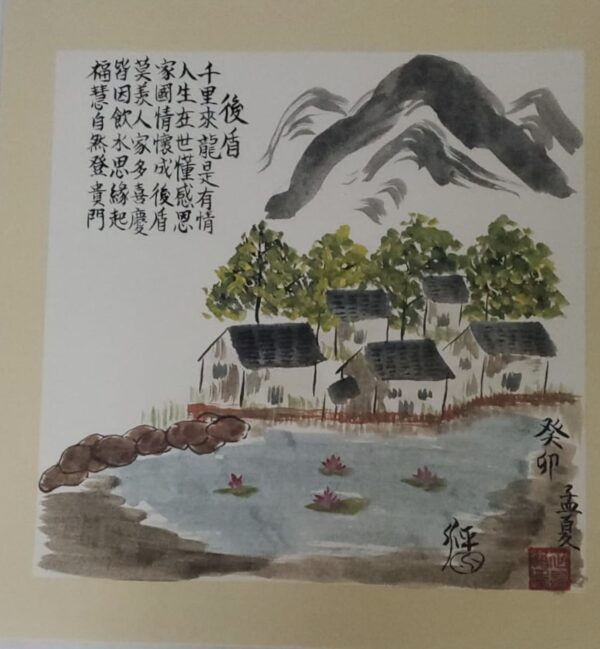 後盾
千里來龍是有情
人生在世懂感恩
家國情懷成後盾
莫羨人家多喜慶
皆因飲水思緣起
福慧自然登貴門
癸卯
孟夏